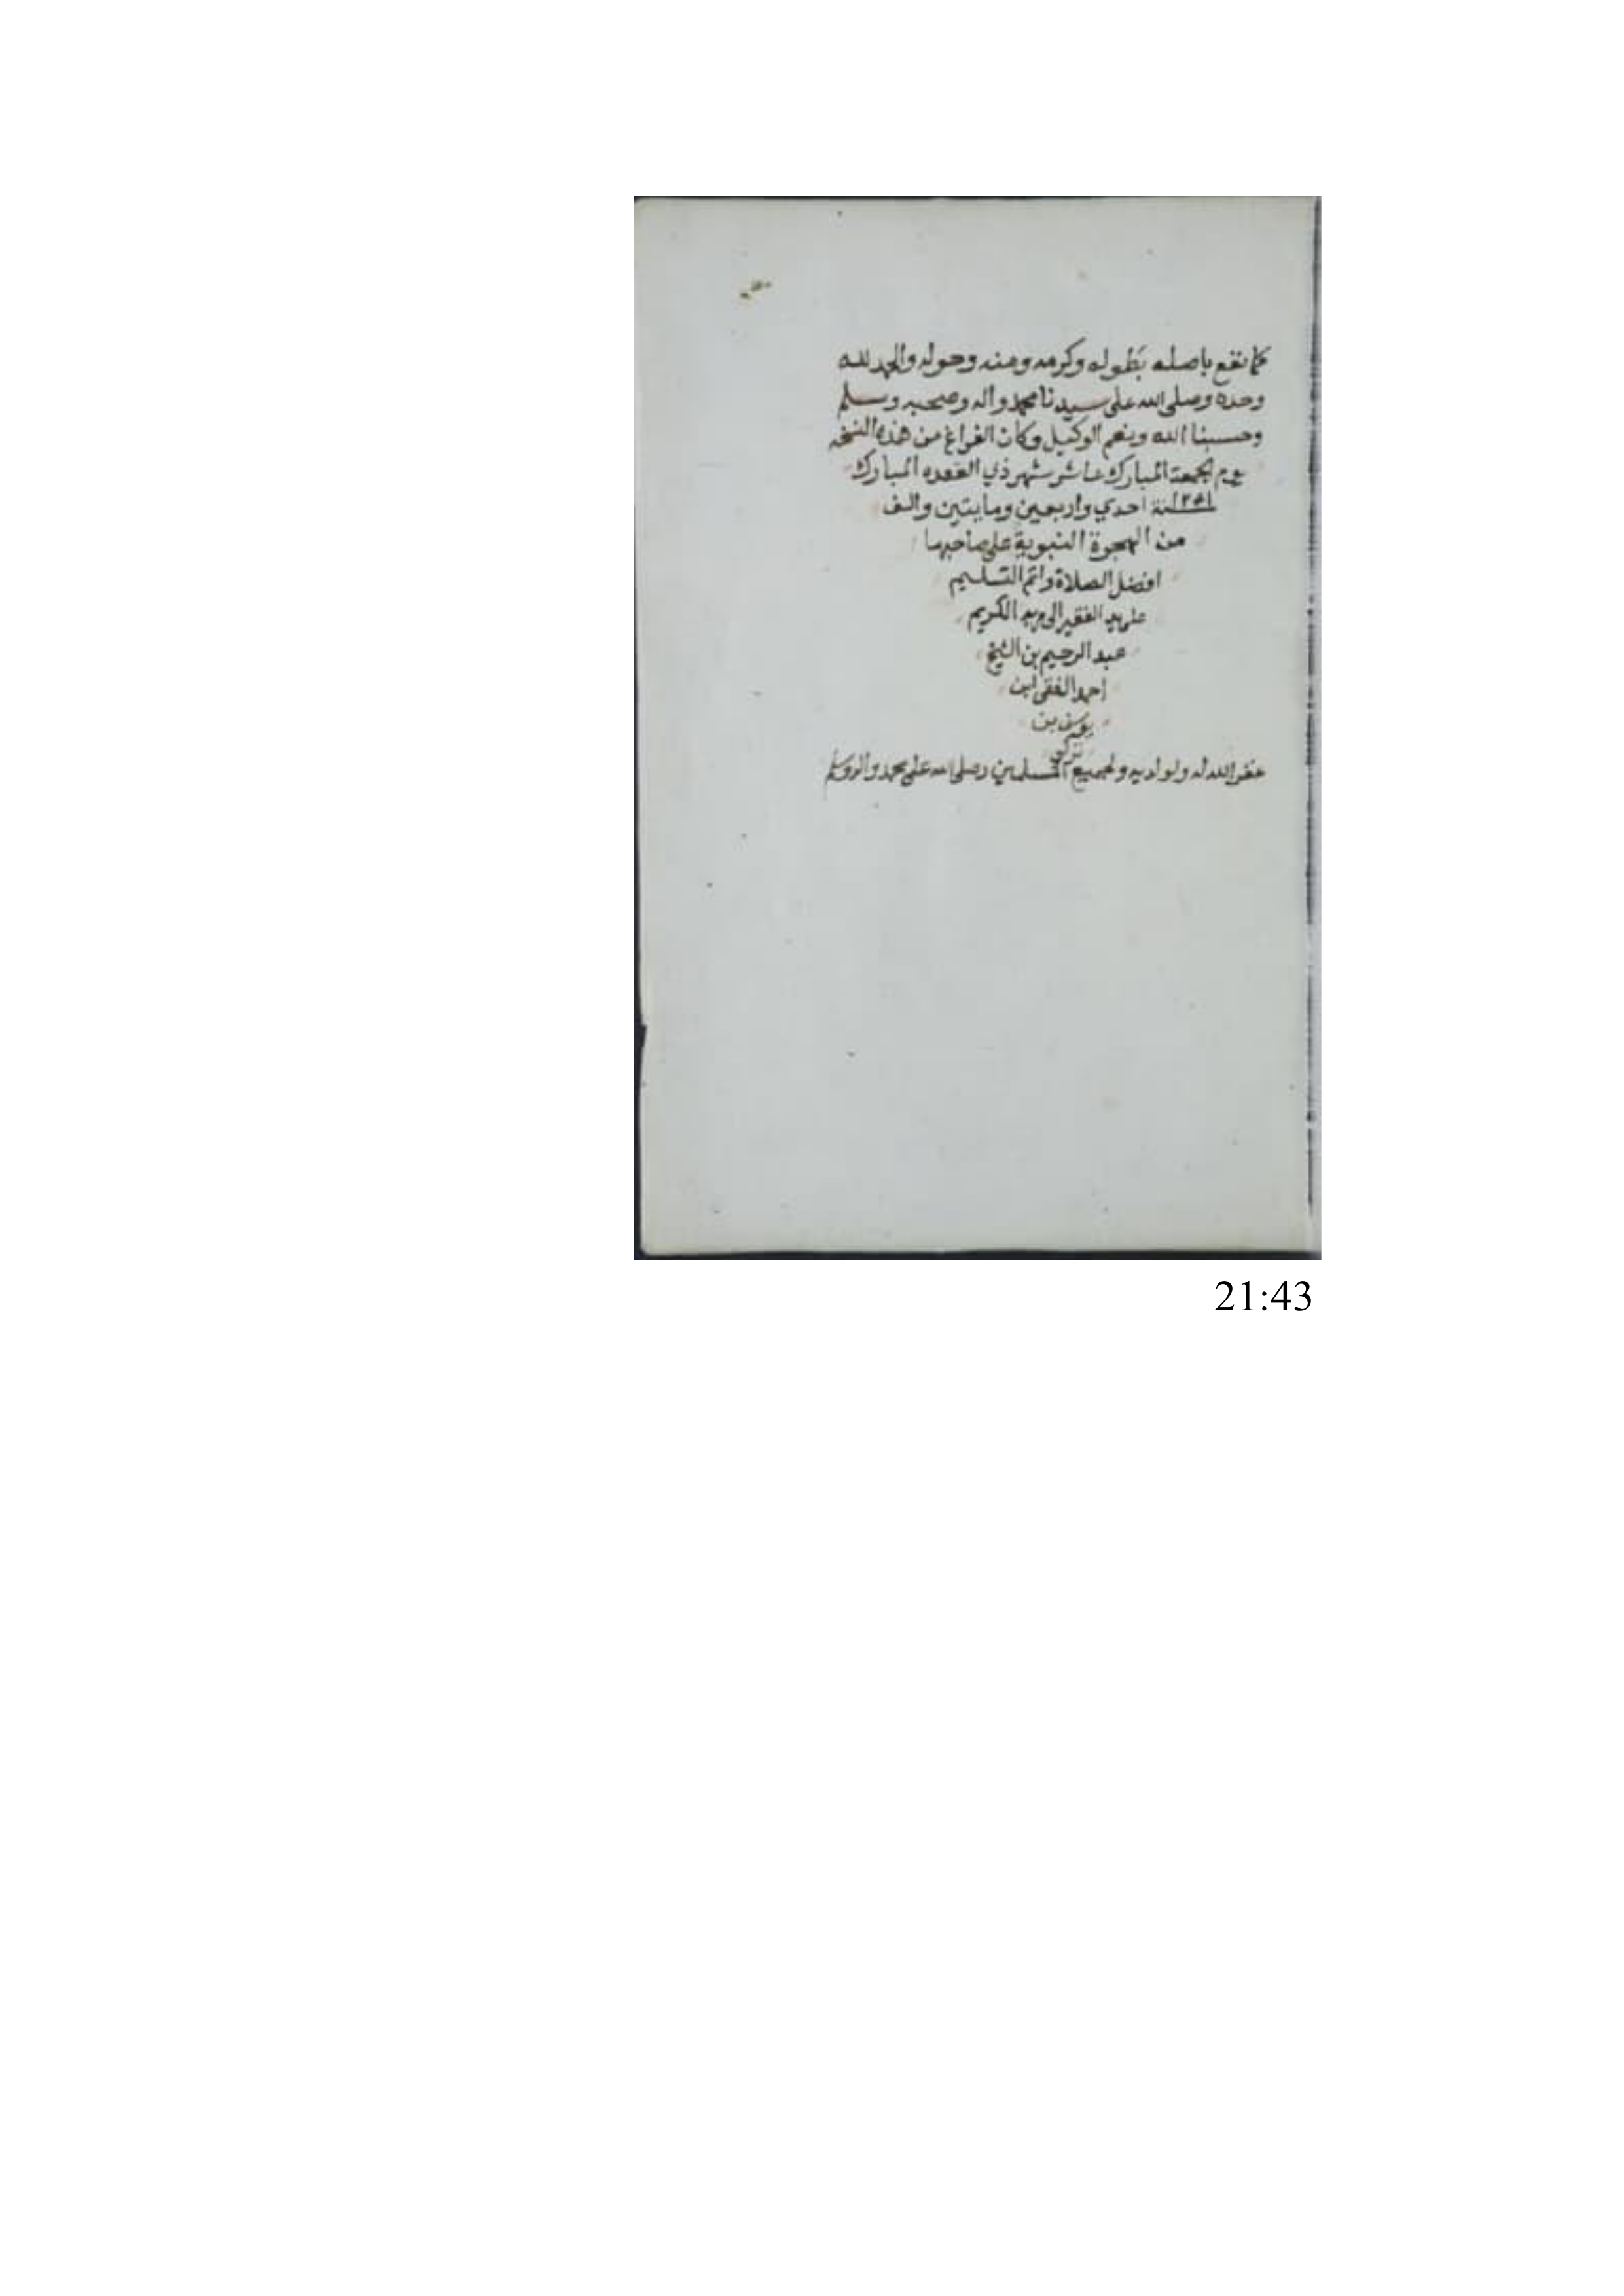 كما نفع باصله بطوله وكرمه ومنه وحوله والحمد لله
وحده وصلى الله على سيدنا محمد واله وصحبه وسلم
وحسبنا الله ونعم الوكيل وكان الفراغ من هذه النسخه
يوم الجمعة المبارك عاشر شهر ذي القعده المبارك
سنة ١٢٤١ احدي واربعين ومايتين والف
من الهجرة النبوية على صاحبها
افضل الصلاة واتم التسليم
على يد الفقير الى ربه الكريم
عبد الرحيم بن الشيخ
احمد الفقى ابن
يوسف بن
تركي
غفر الله له ولوالديه ولجميع المسلمين وصلى الله على محمد واله وسلم
21:43